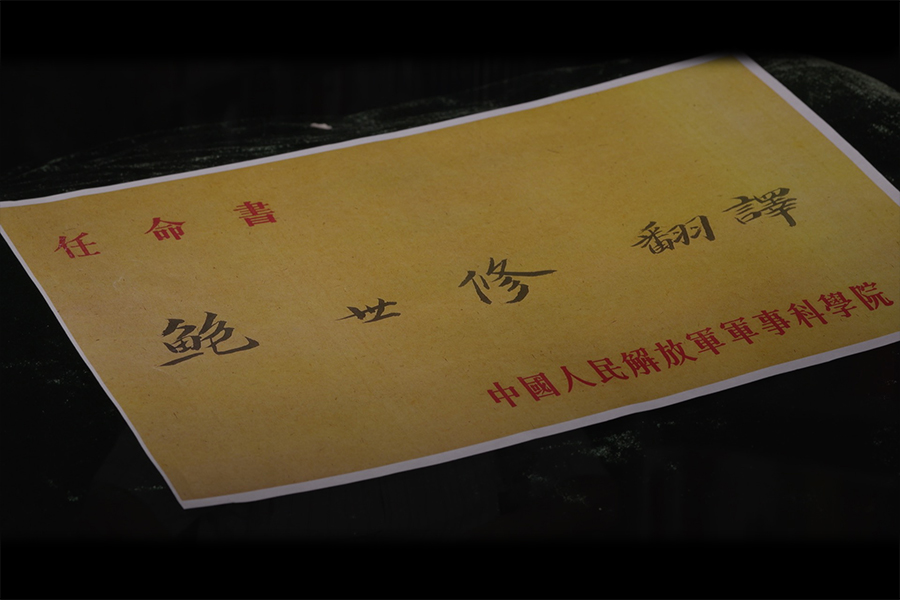 任命書
鮑世修 翻譯
中國人民解放軍軍事科學院